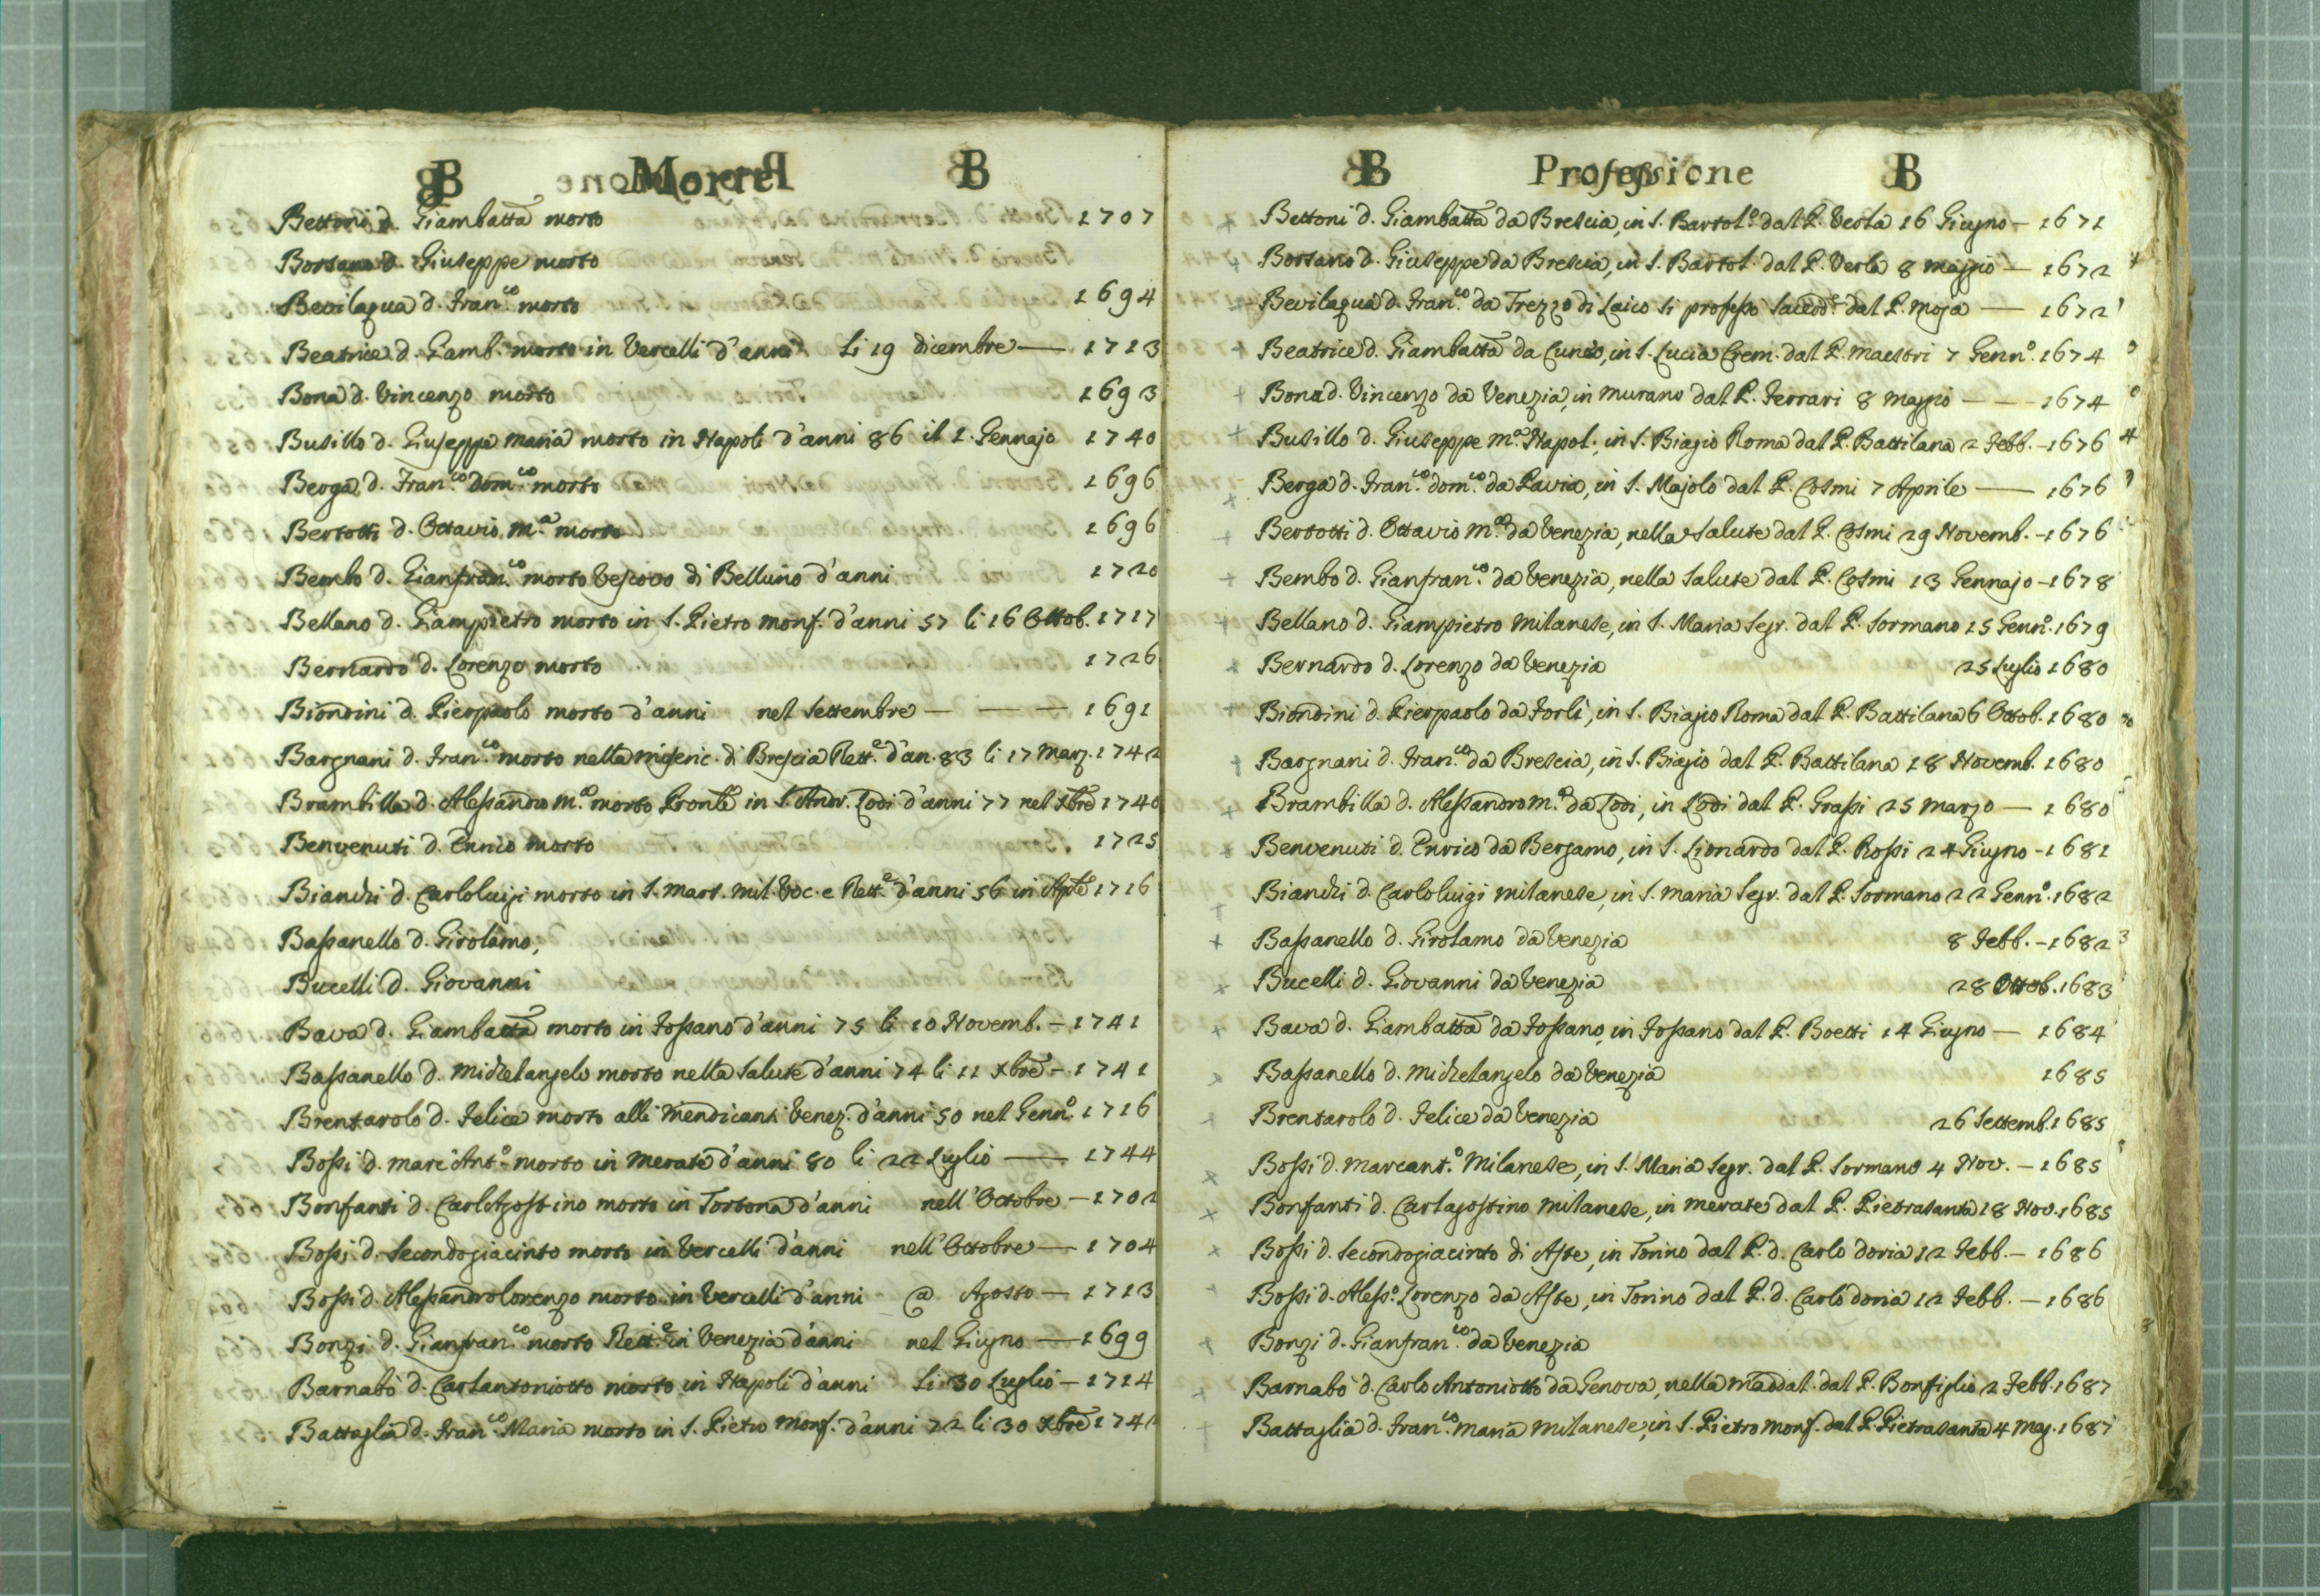 B Morte B
Bettoni d. Giambatta morto 1707
Borsano d. Giuseppe morto
Bevilaqua d. Fran.co morto 1694
Beatrice d. Giamb. morto in Vercelli d'anni li 19 dicembre — 1713
Bona d. Vincenzo morto 1693
Busillo d. Giuseppe Maria morto in Napoli d'anni 86 il 1. Gennajo 1740
Berga d. Fran.co Dom.co morto 1696
Bertotti d. Ottavio M.a morto 1696
Bembo d. Gianfran.co morto Vescovo di Belluno d'anni 1720
Bellano d. Giampietro morto in S. Pietro Monf. d'anni 57 li 16 Ottob. 1717
Bernardo d. Lorenzo morto 1726
Biondini d. Pierpaolo morto d'anni nel Settembre — — — 1691
Bargnani d. Fran.co morto nella miseric. di Brescia Rett.e d'an. 83 li 17 Marz. 1742
Brambilla d. Alessandro M.a morto Pronle in S. Andr. Lodi d'anni 77 nel Xbre 1740
Benvenuti d. Ennio morto 1725
Bianchi d. Carloluigi morto in S. Mart. Mil. Voc. e Rett.e d'anni 56 in Aple 1716
Bassanello d. Girolamo,
Bucelli d. Giovanni
Bava d. Giambatta morto in Fossano d'anni 75 li 10 Novemb. — 1741
Bassanello d. Michelangelo morto nella Salute d'anni 74 li 11 Xbre — 1741
Brentarolo d. Felice morto alli Mendicanti Venez. d'anni 50 nel Genn.o 1716
Bossi d. Marc'Ant.o morto in Merate d'anni 80 li 22 Luglio — 1744
Bonfanti d. Carlagostino morto in Tortona d'anni nell'Octobre — 1702
Bossi d. Secondogiacinto morto in Vercelli d'anni nell'Octobre — 1704
Bossi d. Alessandrolorenzo morto in Vercelli d'anni @ Agosto — 1713
Bonzi d. Gianfran.co morto Rett.e in Venezia d'anni nel Giugno — 1699
Barnabò d. Carlantoniotto morto in Napoli d'anni li 30 Luglio — 1714
Battaglia d. Fran.co Maria morto in S. Pietro Monf. d'anni 72 li 30 Xbre 174
B Professione B
+ Bettoni d. Giambatta da Brescia, in S. Bartol.o dal P. Verla 16 Giugno — 1671
+ Borsano d. Giuseppe da Brescia, in S. Bartol. dal P. Verla 8 Maggio — 1672
Bevilaqua d. Fran.co da Trezzo di Laico si professò Sacerd.e dal P. Moja — 1672
+ Beatrice d. Giambatta da Cuneo, in S. Lucia Crem. dal P. Maestri 7 Genn.o 1674
+ Bona d. Vincenzo da Venezia, in Murano dal P. Ferrari 8 Maggio — — 1674
+ Busillo d. Giuseppe M.a Napol., in S. Biagio Roma dal P. Battilana 2 Febb. — 1676
+ Berga d. Fran.co Dom.co da Pavia, in S. Majolo dal P. Cosmi 7 Aprile — 1676
+ Bertotti d. Ottavio M.a da Venezia, nella Salute dal P. Cosmi 29 Novemb. — 1676
+ Bembo d. Gianfran.co da Venezia, nella Salute dal P. Cosmi 13 Gennajo — 1678
+ Bellano d. Giampietro Milanese, in S. Maria Segr. dal P. Sormano 15 Genn.o 1679
+ Bernardo d. Lorenzo da Venezia 25 Luglio 1680
+ Biondini d. Pierpaolo da Forlì, in S. Biagio Roma dal P. Battilana 6 Ottob. 1680
+ Bargnani d. Fran.co da Brescia, in S. Biagio dal P. Battilana 18 Novemb. 1680
+ Brambilla d. Alessandro M.a da Lodi, in Lodi dal P. Grassi 25 Marzo — 1680
+ Benvenuti d. Enrico da Bergamo, in S. Lionardo dal P. Rossi 24 Giugno — 1681
+ Bianchi d. Carloluigi Milanese, in S. Maria Segr. dal P. Sormano 22 Genn.o 1682
+ Bassanello d. Girolamo da Venezia 8 Febb. — 1682
× Bucelli d. Giovanni da Venezia 28 Ottob. 1683
× Bava d. Giambatta da Fossano, in Fossano dal P. Boetti 14 Giugno — 1684
× Bassanello d. Michelangelo da Venezia 1685
+ Brentarolo d. Felice da Venezia 26 Settemb. 1685
× Bossi d. Marcant.o Milanese, in S. Maria Segr. dal P. Sormano 4 Nov. — 1685
× Bonfanti d. Carlagostino Milanese, in Merate dal P. Pietrasanta 18 Nov. 1685
× Bossi d. Secondogiacinto di Aste, in Torino dal P. d. Carlo Doria 12 Febb. — 1686
Bossi d. Aless.o Lorenzo da Aste, in Torino dal P. d. Carlo Doria 12 Febb. — 1686
+ Bonzi d. Gianfran.co da Venezia
+ Barnabò d. Carlo Antoniotto da Genova, nella Maddal. dal P. Bonfiglio 2 Febb. 1687
+ Battaglia d. Fran.co Maria Milanese, in S. Pietro Monf. dal P. Pietrasanta 4 Mag. 1687